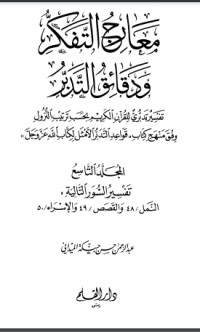 معارج التفكر
ودقائق التدبر
تفسير تدبري للقرآن الكريم بحسب ترتيب النزول
وفق منهج كتاب « قواعد التدبر الأمثل لكتاب الله عز وجل »
المجلد التاسع
تفسير السور التالية :
النمل / ٤٨ والقصص / ٤٩ والإسراء / ٥٠
عبد الرحمن حسن حبنكة الميداني
دار القلم
دمشق